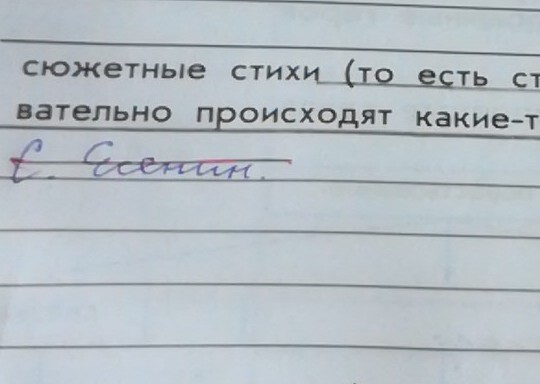 сюжетные стихи (то есть ст
вательно происходят какие-т
С. Есенин.